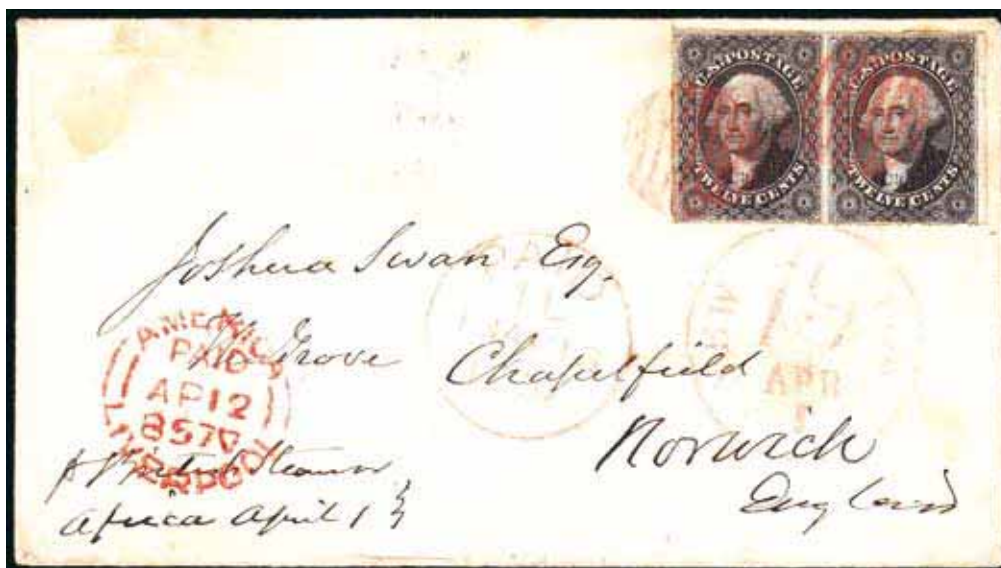 U.S. POSTAGE
TWELVE CENTS
U.S. POSTAGE
TWELVE CENTS
Joshua Swan Esq.
The Grove Chapelfield
Norwich
England
AMERICA
PAID
AP 12
857
LIVERPOOL
NEW
APR
p British Steamer
Africa April 1